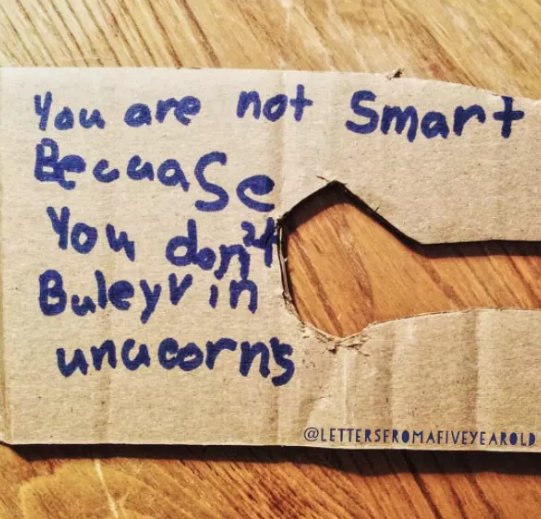 You are not Smart
Becuase
You don't
Buleyv in
unucorns
@LETTERSFROMAFIVEYEAROLD